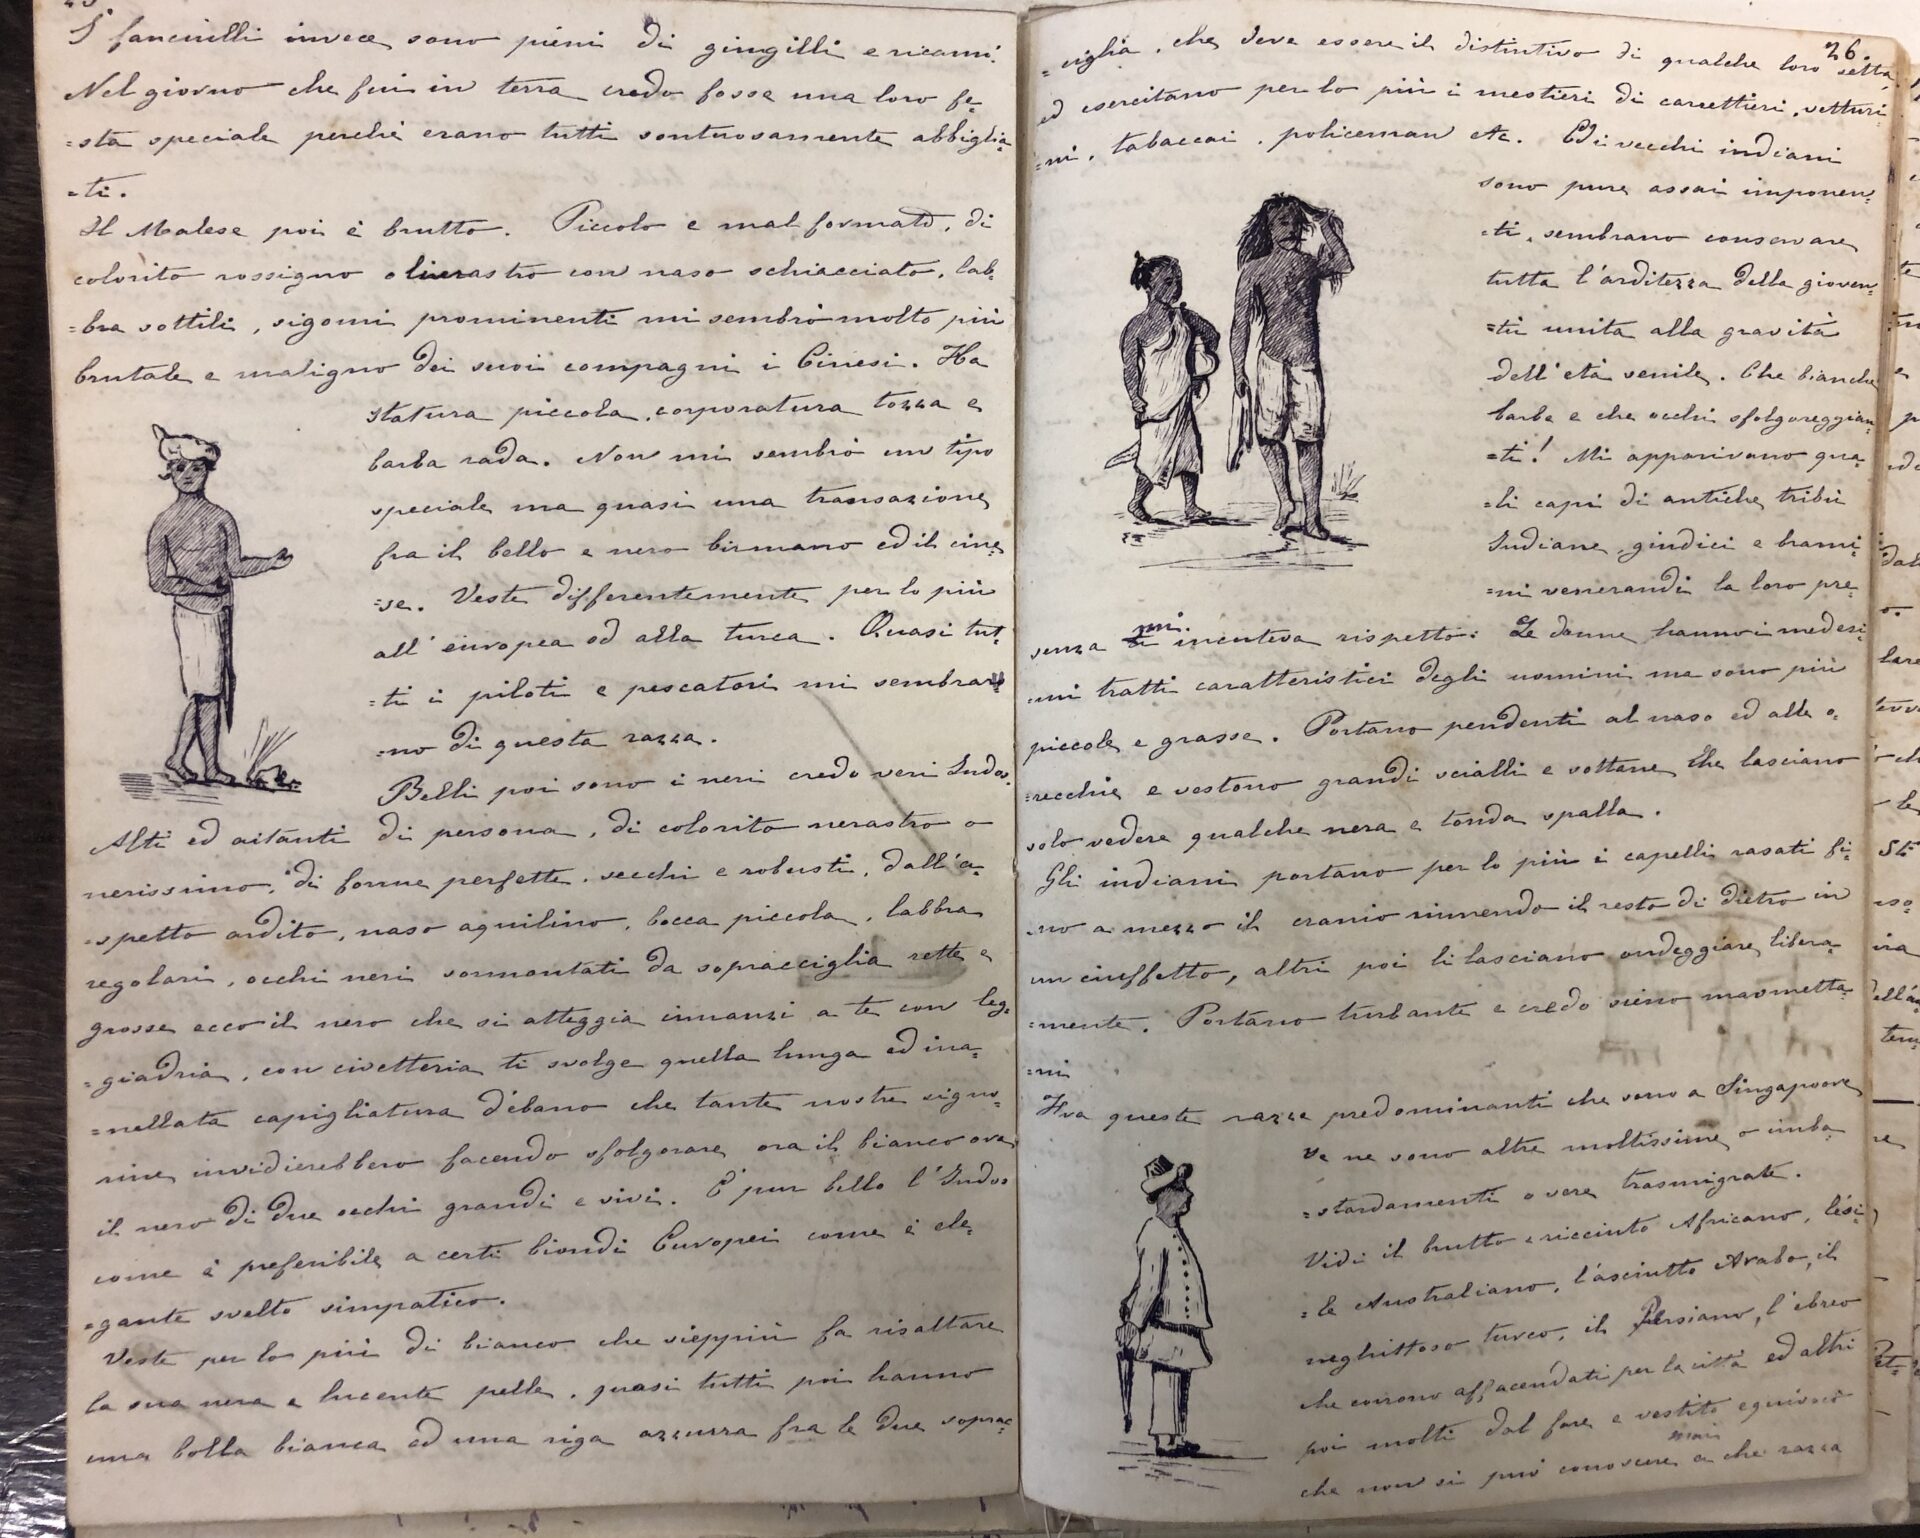 25
I fanciulli invece sono pieni di gingilli e ricami.
Nel giorno che fui in terra credo fosse una loro fe=
=sta speciale perchè erano tutti sontuosamente abbiglia
=ti.
Il Malese poi è brutto. Piccolo e mal formato, di
colorito rossigno olivastro con naso schiacciato, lab=
=bra sottili, zigomi prominenti mi sembrò molto più
brutale e maligno dei suoi compagni i Cinesi. Ha
statura piccola, corporatura tozza e
barba rada. Non mi sembrò un tipo
speciale ma quasi una transazione
fra il bello e nero birmano ed il cine=
=se. Veste differentemente per lo più
all'europea od alla turca. Quasi tut=
=ti i piloti e pescatori mi sembrar
=no di questa razza.
Belli poi sono i neri credo veri Indos.
Alti ed aitanti di persona, di colorito nerastro o
nerissimo, di forme perfette, secchi e robusti, dall'a=
=spetto ardito, naso aquilino, bocca piccola, labbra
regolari, occhi neri sormontati da sopracciglia rette e
grosse ecco il nero che si atteggia innanzi a te con leg=
=giadria, con civetteria ti svolge quella lunga ed ina=
=nellata capigliatura d'ebano che tante nostre signo=
rine invidierebbero facendo sfolgorare ora il bianco ora
il nero di due occhi grandi e vivi. È pur bello l'Indos
come è preferibile a certi biondi Europei come è ele=
=gante svelto simpatico.
Veste per lo più di bianco che sieppiù fa risaltare
la sua nera e lucente pelle, quasi tutti poi hanno
una bolla bianca ed una riga azzurra fra le due soprac=
26.
=ciglia, che deve essere il distintivo di qualche loro setta,
ed esercitano per lo più i mestieri di carrettieri, vetturi=
=ni, tabaccai, policeman etc. Ed i vecchi indiani
sono pure assai imponen=
=ti, sembrano conservare
tutta l'arditezza della gioven=
=tù unita alla gravità
dell'età senile. Che bianche
barbe e che occhi sfolgoreggian=
=ti! Mi apparivano qua=
=li capi di antiche tribù
Indiane, giudici e brami=
=ni venerandi la loro pre=
mi.
senza ti incuteva rispetto. Le donne hanno i medesi=
=mi tratti caratteristici degli uomini ma sono più
piccole e grasse. Portano pendenti al naso ed alle o=
=recchie e vestono grandi scialli e sottane che lasciano
solo vedere qualche nera e tonda spalla.
Gli indiani portano per lo più i capelli rasati fi=
=no a mezzo il cranio riunendo il resto di dietro in
un ciuffetto, altri poi li lasciano ondeggiare libera=
=mente. Portano turbante e credo sieno maomettà=
=ni
Fra queste razze predominanti che sono a Singapoore
ve ne sono altre moltissime o imba=
=stardamenti o vere trasmigrate.
Vidi il brutto e ricciuto Africano, l'esi=
=le Australiano, l'asciutto Arabo, il
neghittoso turco, il Persiano, l'ebreo
che corrono affacendati per la città ed altri
poi molti dal fare e vestito equivoco
mai
che non si può conoscere a che razza